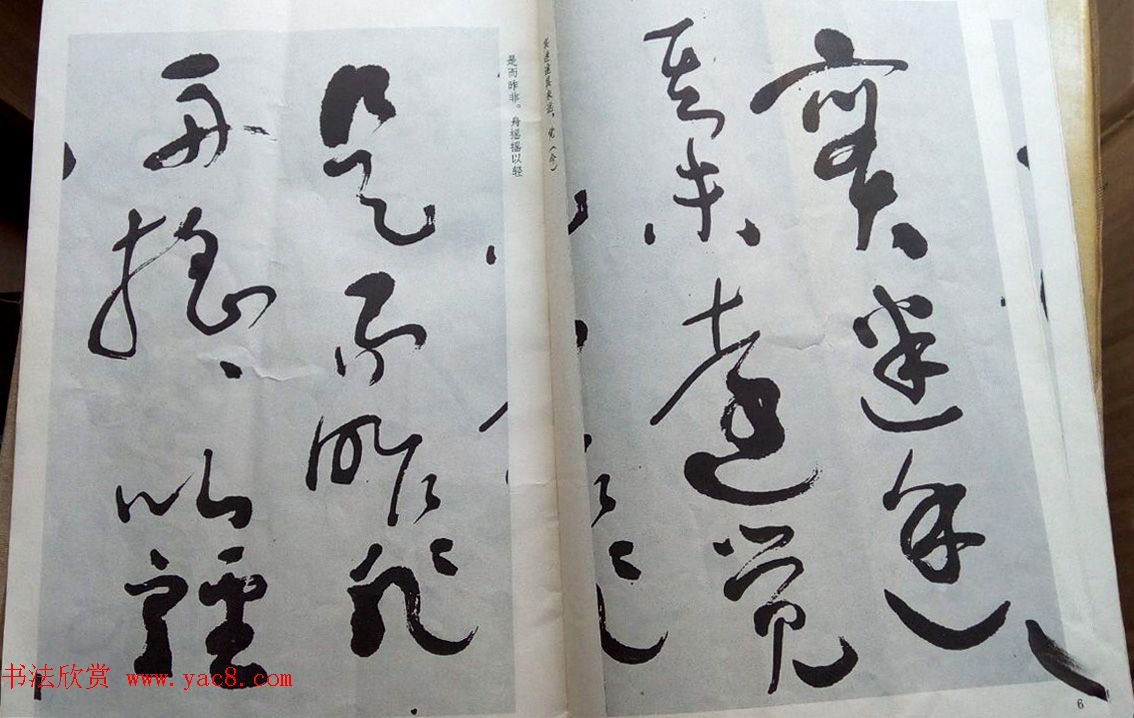 實迷途
其未遠覺
实迷途其未远,觉(今)
6
是而昨非。舟摇摇以轻
是而昨非
舟搖、以輕
书法欣赏 www.yac8.com